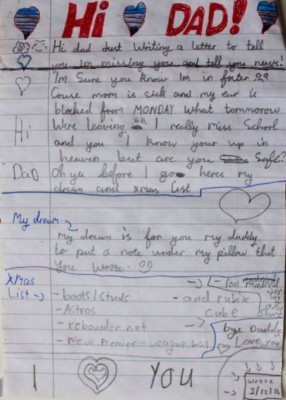 Hi DAD!
Hi dad Just Writing a letter to tell
you Im missing you and tell you news!
Im Sure you know Im in foster
Couse mom is sick and my ear is
blocked from MONDAY What tommorow
Were leaving I really miss School
and you I know your up in
heaven but are you Safe?
Oh ya before I go heres my
dream and xmas List
Hi
Dad
My dream
my dream is for you my daddy
to put a note under my pillow that
you wrote.
Xmas
List
- boots/studs
- Astros
- rebounder net
- New Premier league ball
- and rubix
cube
bye Daddy
Love
I
YOU
wrote